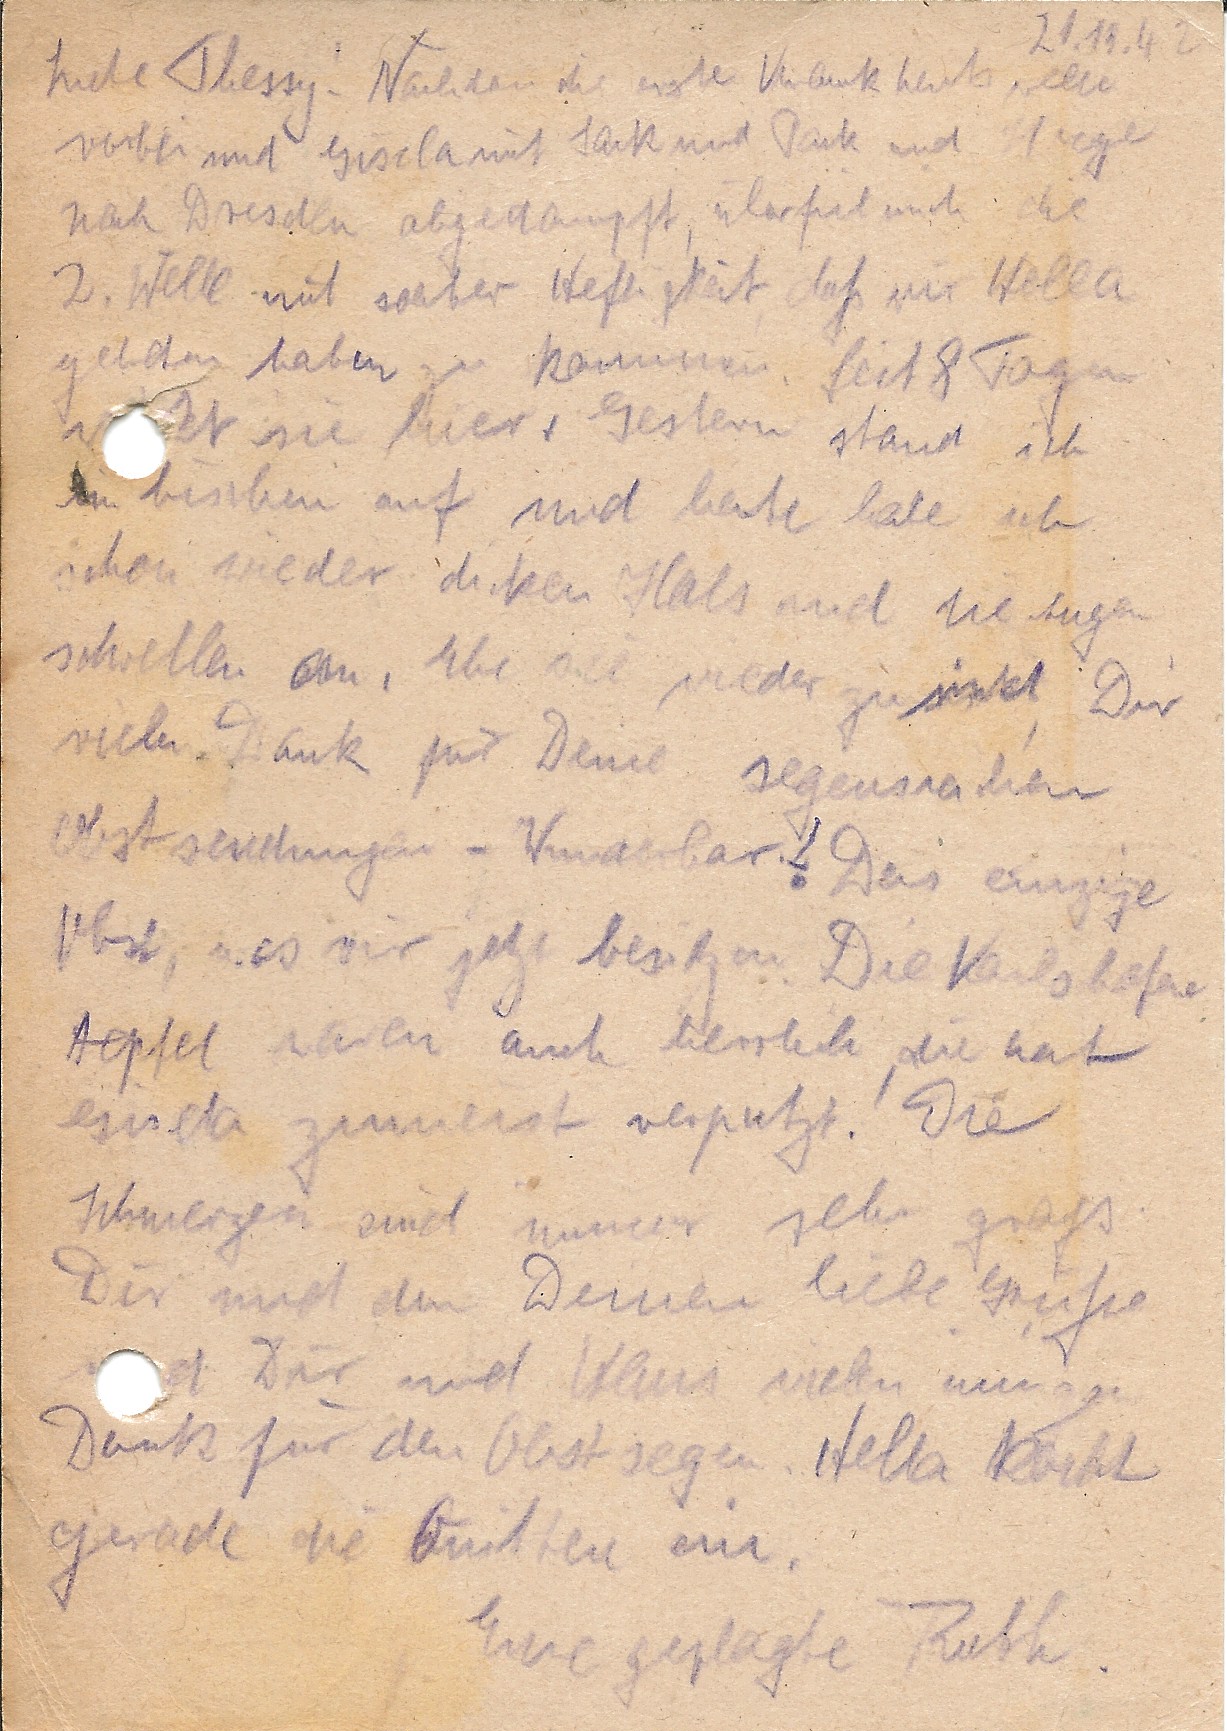 21.10.42
Liebe Thessy! Nachdem die erste Krankheitswelle
vorbei und Gisela mit Sack und Pack und
nach Dresden abgedampft, überfiel mich die
2. Welle mit solcher Heftigkeit, daß wir Hella
gebeten haben zu kommen. Seit 8 Tagen
ist sie hier. Gestern stand ich
ein bischen auf und heute habe ich
schon wieder dicken Hals und die Augen
schwellen an. Ehe sie wieder zu sind, Dir
vielen Dank für Deine segensreichen
Obstsendungen - Wunderbar! Das einzige
Obst, was wir jetzt besitzen. Die Karlshafener
Aepfel waren auch herrlich, die hat
Gisela zumeist verputzt! Die
Schmerzen sind immer sehr groß.
Dir und den Deinen liebe Grüße
und Dir und Klaus vielen innigen
Dank für den Obstsegen. Hella kocht
gerade die Quitten ein.
Eure geplagte Ruth.